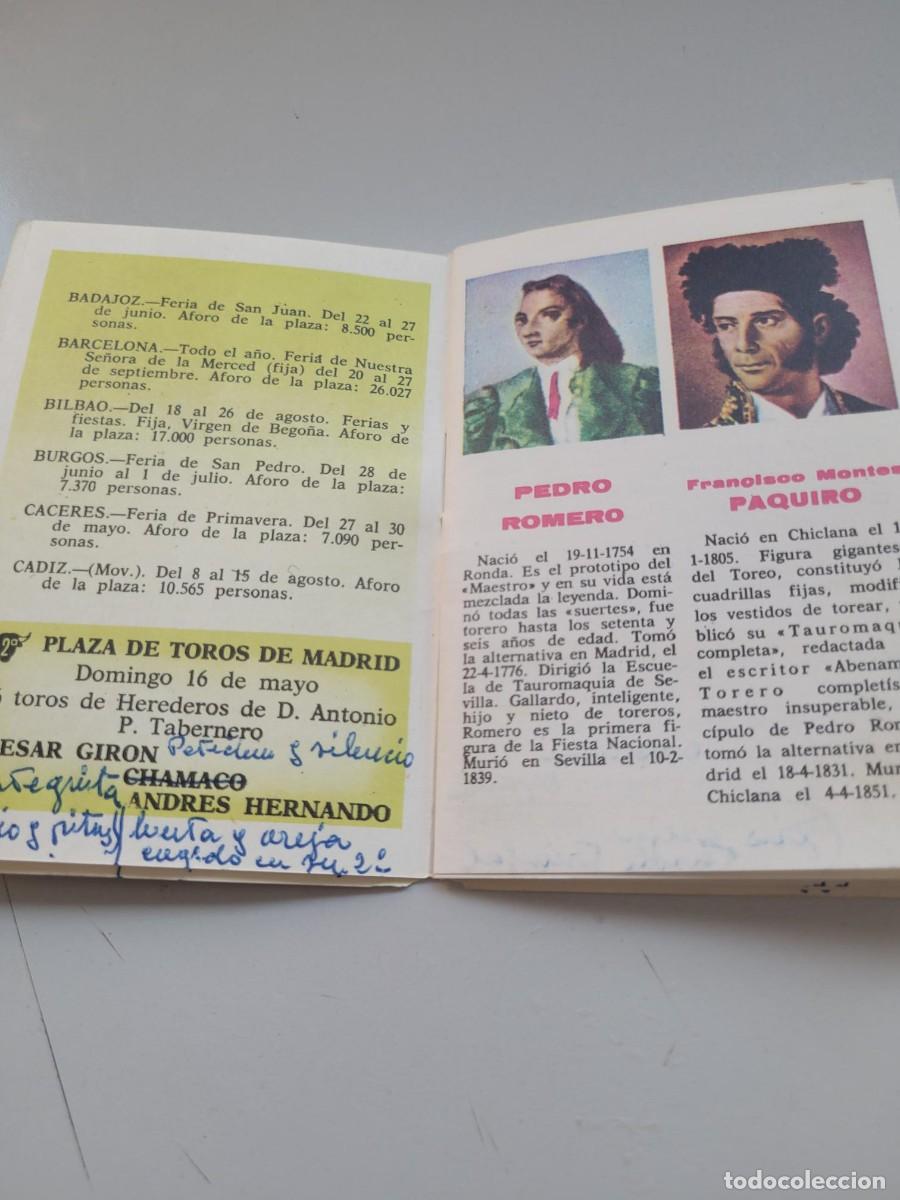 BADAJOZ.—Feria de San Juan. Del 22 al 27
de junio. Aforo de la plaza: 8.500 per-
sonas.
BARCELONA.—Todo el año. Feria de Nuestra
Señora de la Merced (fija) del 20 al 27
de septiembre. Aforo de la plaza: 26.027
personas.
BILBAO.—Del 18 al 26 de agosto. Ferias y
fiestas. Fija, Virgen de Begoña. Aforo de
la plaza: 17.000 personas.
BURGOS.—Feria de San Pedro. Del 28 de
junio al 1 de julio. Aforo de la plaza:
7.370 personas.
CACERES.—Feria de Primavera. Del 27 al 30
de mayo. Aforo de la plaza: 7.090 per-
sonas.
CADIZ.—(Mov.). Del 8 al 15 de agosto. Aforo
de la plaza: 10.565 personas.
2ª PLAZA DE TOROS DE MADRID
Domingo 16 de mayo
toros de Herederos de D. Antonio
P. Tabernero
ESAR GIRON Peticion y silencio
CHAMACO
ANDRES HERNANDO
y pitos vuelta y oreja
cogido en su 2º
PEDRO
ROMERO
Nació el 19-11-1754 en
Ronda. Es el prototipo del
«Maestro» y en su vida está
mezclada la leyenda. Domi-
nó todas las «suertes», fue
torero hasta los setenta y
seis años de edad. Tomó
la alternativa en Madrid, el
22-4-1776. Dirigió la Escue-
la de Tauromaquia de Se-
villa. Gallardo, inteligente,
hijo y nieto de toreros,
Romero es la primera fi-
gura de la Fiesta Nacional.
Murió en Sevilla el 10-2-
1839.
Francisco Montes
PAQUIRO
Nació en Chiclana el 1
1-1805. Figura gigantes
del Toreo, constituyó
cuadrillas fijas, modifi
los vestidos de torear,
blicó su «Tauromaqu
completa», redactada
el escritor «Abenam
Torero completís
maestro insuperable,
cípulo de Pedro Rom
tomó la alternativa en
drid el 18-4-1831. Mur
Chiclana el 4-4-1851.
todocoleccion